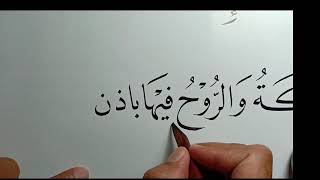 ـكَةُ وَالرُّوْحُ فِيْهَا باذن